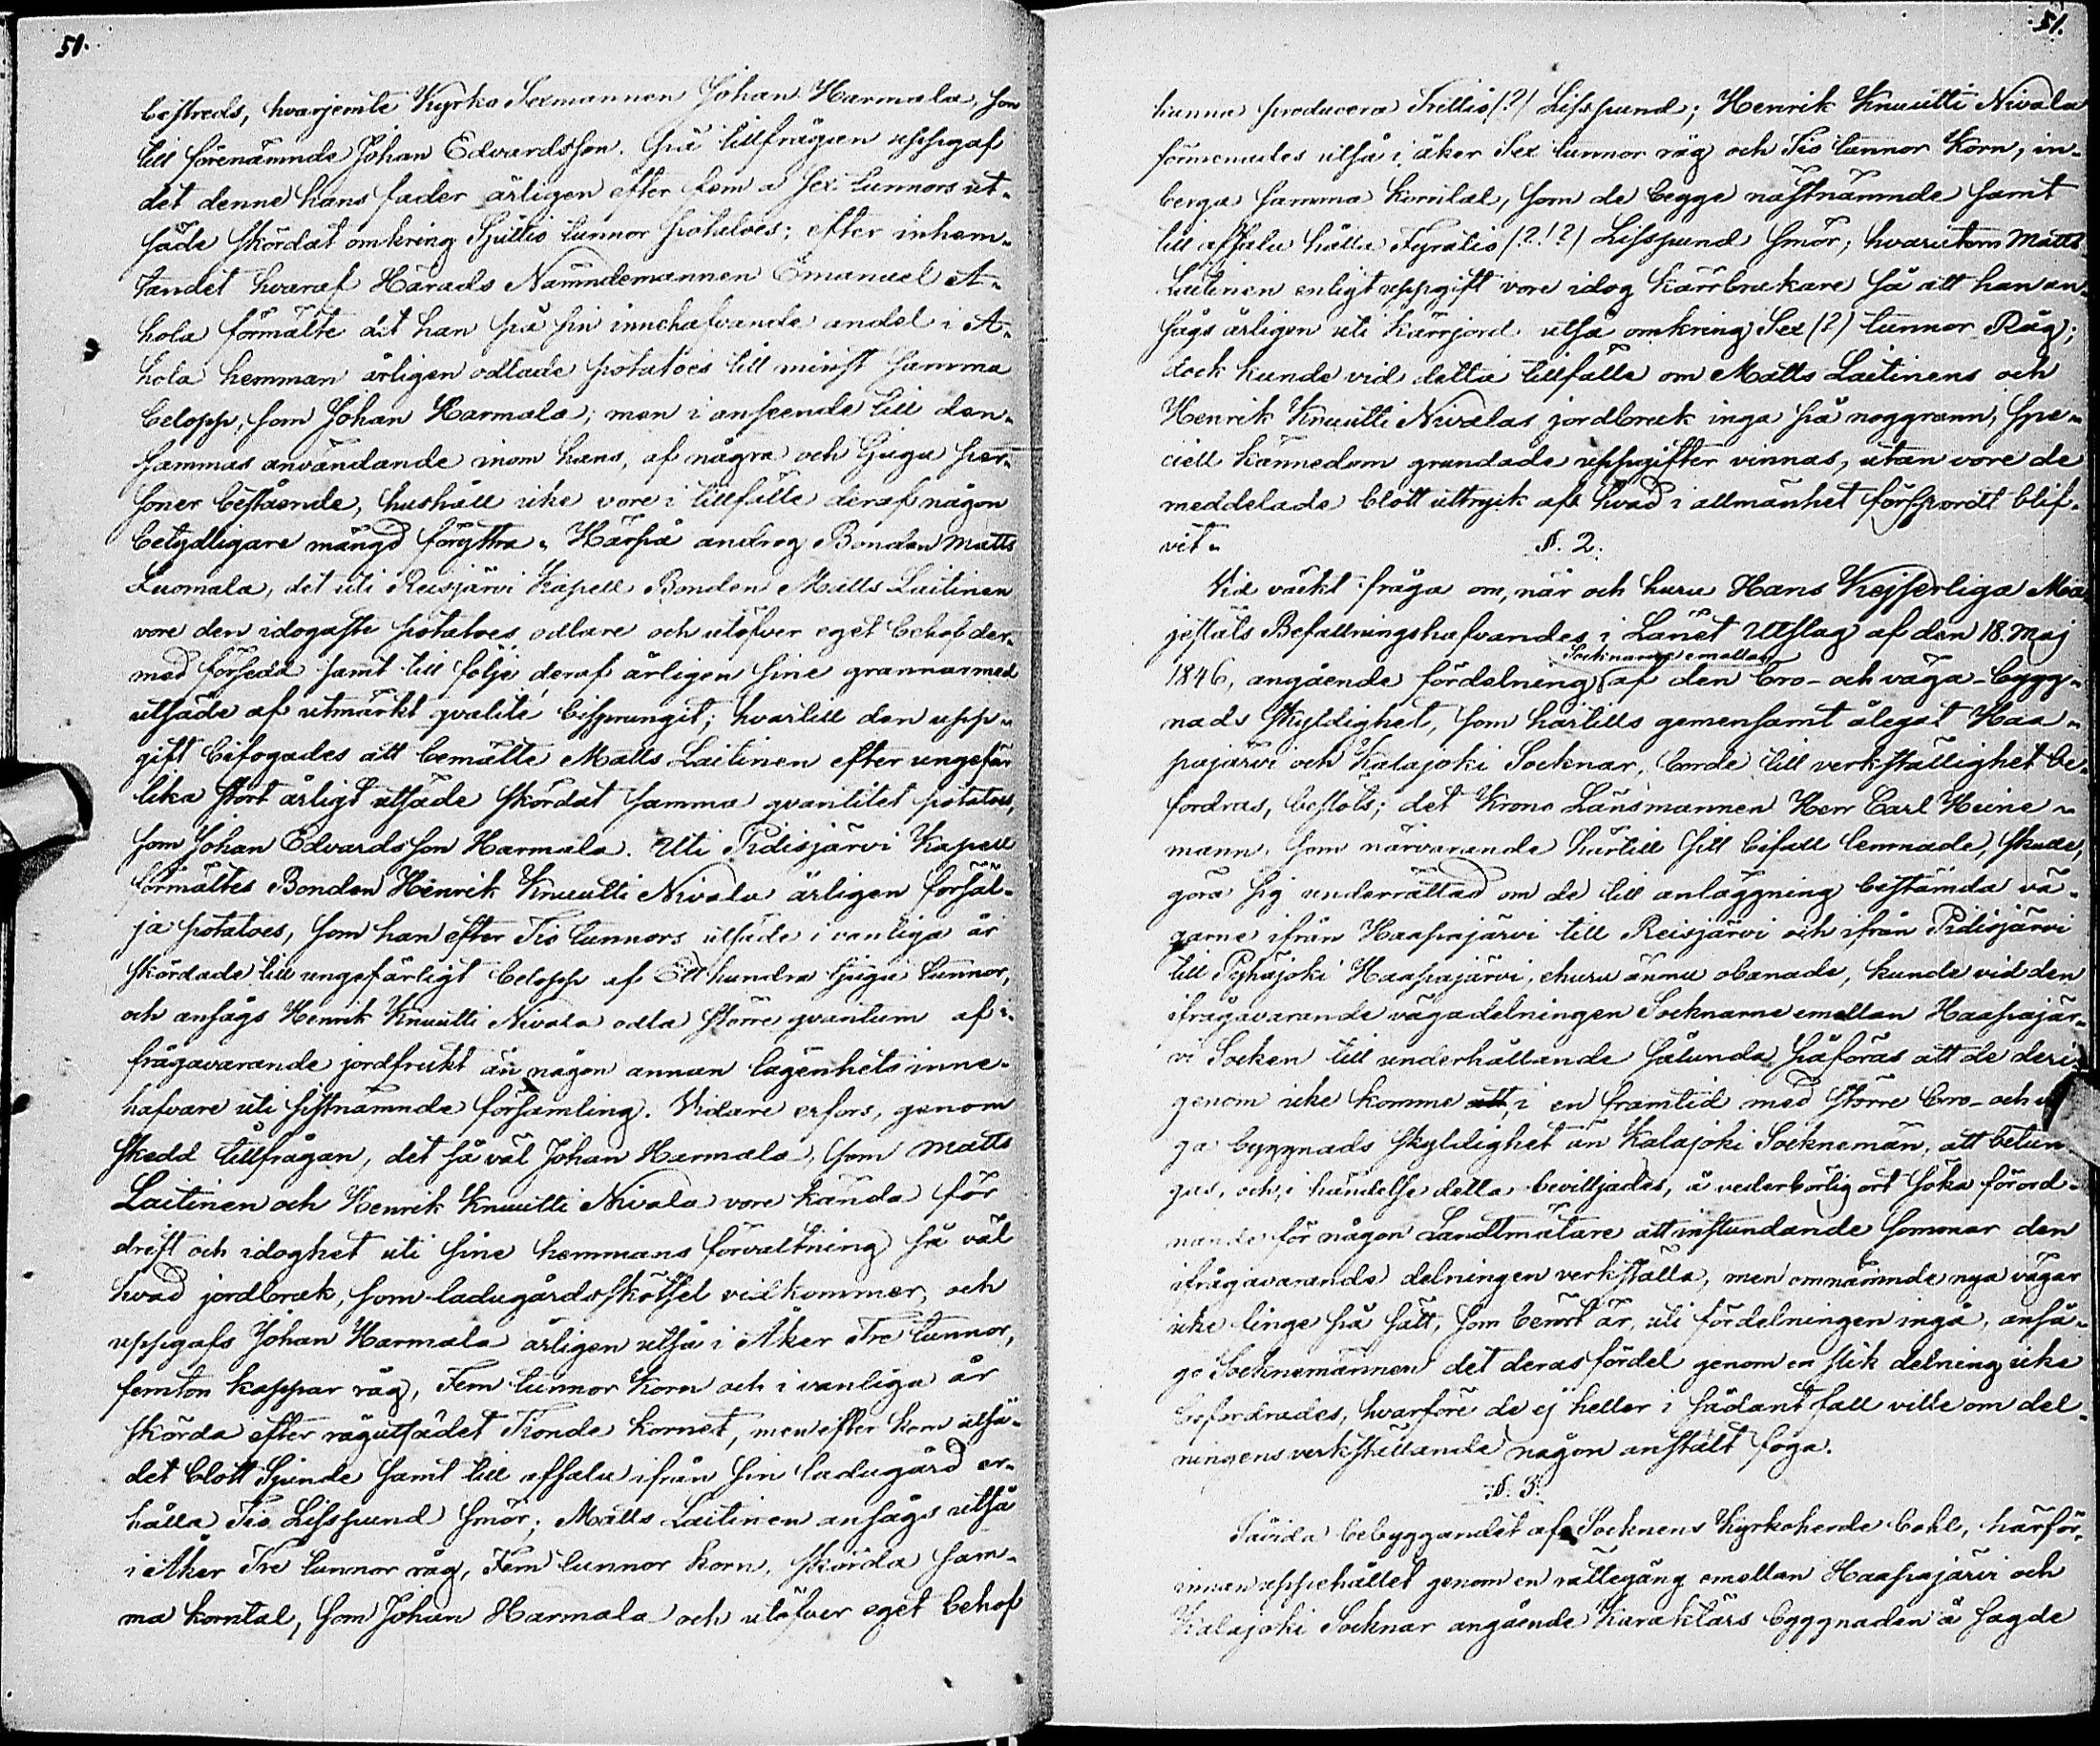 50.
bestreds, hvarjemte Kyrko Sexmannen Johan Harmala, son
till förenämnde Johan Edvardsson. på tillfrågan uppgaf
det denne hans fader årligen efter fem a sex tunnors ut-
säde skördat omkring Sjuttio tunnor potatoes; efter inhem-
tandet hvaraf Härads Nämndemannen Emanuel A-
hola förmälte att han på sin innehafvande andel i A-
hola hemman årligen odlade potatoes till minst samma
belopp, som Johan Harmala; men i anseende till den-
sammas användande inom hans, af några och tjugu per-
soner bestående, hushåll icke vore i tillfälle deraf någon
betydligare mängd föryttra. Härpå androg Bonden Matts
Luomala, det uti Reisjärvi Kapell Bonden Matts Laitinen
vore den idogaste potatoes odlare och utöfver eget behof der-
med försedd samt till följe deraf årligen sine grannar med
utsäde af utmärkt qvalité bisprungit; hvartill den upp-
gift bifogades att bemälte Matts Laitinen efter ungefär
lika stort årligt utsäde skördat samma qvantitet potatoes,
som Johan Edvardsson Harmala. Uti Pidisjärvi Kapell
förmältes Bonden Henrik Knuutti Nivala årligen försäl-
ja potatoes, som han efter Tio tunnors utsäde i vanliga år
skördade till ungefärligt belopp af Ett hundra tjugu tunnor,
och ansågs Henrik Knuutti Nivala odla större qvantum af i-
frågavarande jordfrukt än någon annan lägenhets inne-
hafvare uti sistnämnde församling. Vidare erfors, genom
skedd tillfrågan, det så väl Johan Harmala, som Matts
Laitinen och Henrik Knuutti Nivala vore kända för
drift och idoghet uti sine hemmans förvaltning så väl
hvad jordbruk, som ladugårdsskötsel vidkommer, och
uppgafs Johan Harmala årligen utså i Åker Tre tunnor,
femton kappar råg, Fem tunnor Korn och i vanliga år
skörda efter rågutsädet Tionde kornet, men efter korn utsä-
det blott Sjunde samt till afsalu ifrån sin ladugård er-
hålla Tio Lisspund smör; Matts Laitinen ansågs utså
i Åker Tre tunnor råg, Fem tunnor korn, skörda sam-
ma korntal, som Johan Harmala och utöfver eget behof
51.
kunna producera Trettio (?) Lisspund; Henrik Knuutti Nivala
förmenades utså i åker Sex tunnor råg och Tio tunnor Korn, in-
berga samma korntal, som de begge nästnämnde samt
till afsalu hålla Fyratio (?!?) Lisspund smör; hvarutom Matts
Laitinen enligt uppgift vore idog kärrbrukare så att han an-
sågs årligen uti kärrjord utså omkring Sex (?) tunnor Råg;
dock kunde vid detta tillfälle om Matts Laitinens och
Henrik Knuutti Nivalas jordbruk inga på noggrann, spe-
ciell kännedom grundade uppgifter vinnas, utan vore de
meddelade blott uttryck af hvad i allmänhet försport blif-
vit.
§. 2.
Vid väckt fråga om, när och huru Hans Kejserliga Ma-
jestäts Befallningshafvandes i Länet Utslag af den 18. Maj
Socknarne emellan
1846, angående fördelning af den bro- och väga-bygg-
nads skyldighet, som härtills gemensamt ålegat Haa-
pajärvi och Kalajoki Socknar, borde till verkställighet be-
fordras, beslöts; det Krono Länsmannen Herr Carl Heine-
mann, som närvarande härtill sitt bifall lemnade, skulle,
göra sig underrättad om de till anläggning bestämda vä-
garne ifrån Haapajärvi till Reisjärvi och ifrån Pidisjärvi
till Pyhäjoki Haapajärvi, ehuru ännu obanade, kunde vid den
ifrågavarande vägadelningen Socknarne emellan Haapajär-
vi Socken till underhållande sålunda påföras att de deri-
genom icke komme att i en framtid med större bro- och
ga byggnads skyldighet än Kalajoki Socknemän, att betun-
gas, och, i händelse detta bevilljades, å vederbörlig ort söka förord-
nande för någon Landtmätare att instundande sommar den
ifrågavarande delningen verkställa, men omnämnde nya vägar
icke finge på sätt, som berört är, uti fördelningen ingå, anså-
go Socknemännen det deras fördel genom en slik delning icke
befordrades, hvarföre de ej heller i sådant fall ville om del-
ningens verkställande någon anstalt foga.
§. 3.
Såvida bebyggandet af Socknens Kyrkoherde bohl, härför-
innan uppehållet genom en rättegång emellan Haapajärvi och
Kalajoki Socknar angående Karaktärs byggnaden å sagde